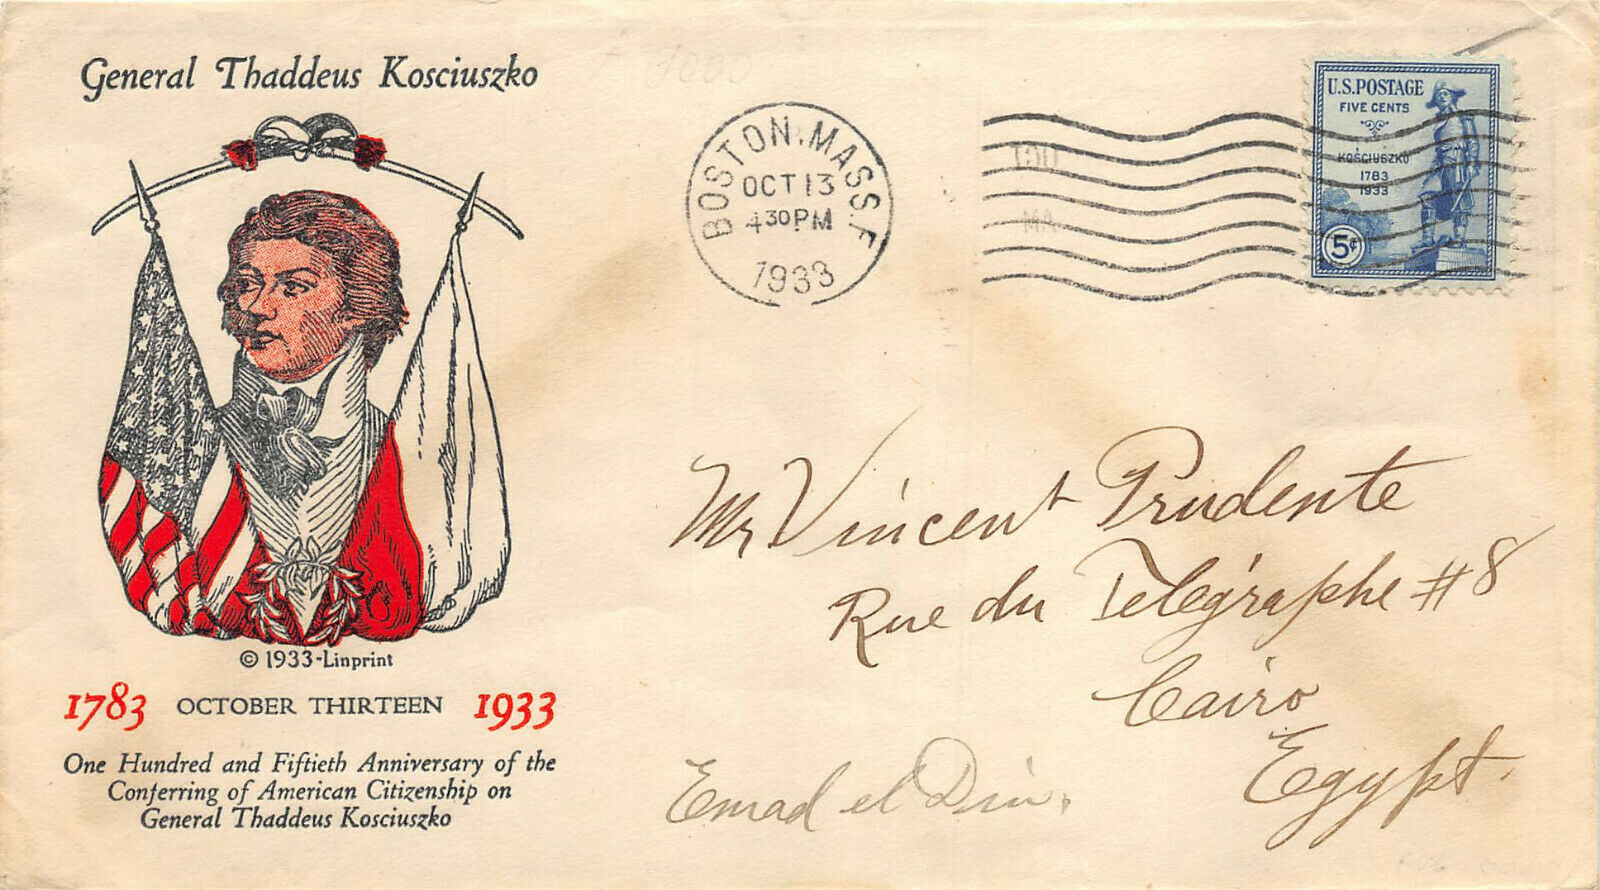 General Thaddeus Kosciuszko
© 1933-Linprint
1783 OCTOBER THIRTEEN 1933
One Hundred and Fiftieth Anniversary of the
Conferring of American Citizenship on
General Thaddeus Kosciuszko
BOSTON, MASS. F
OCT 13
4 30 PM
1933
U.S. POSTAGE
FIVE CENTS
KOSCIUSZKO
1783
1933
5¢
Mr Vincent Prudente
Rue du Telégraphe #8
Cairo
Egypt.
Emad el Din.